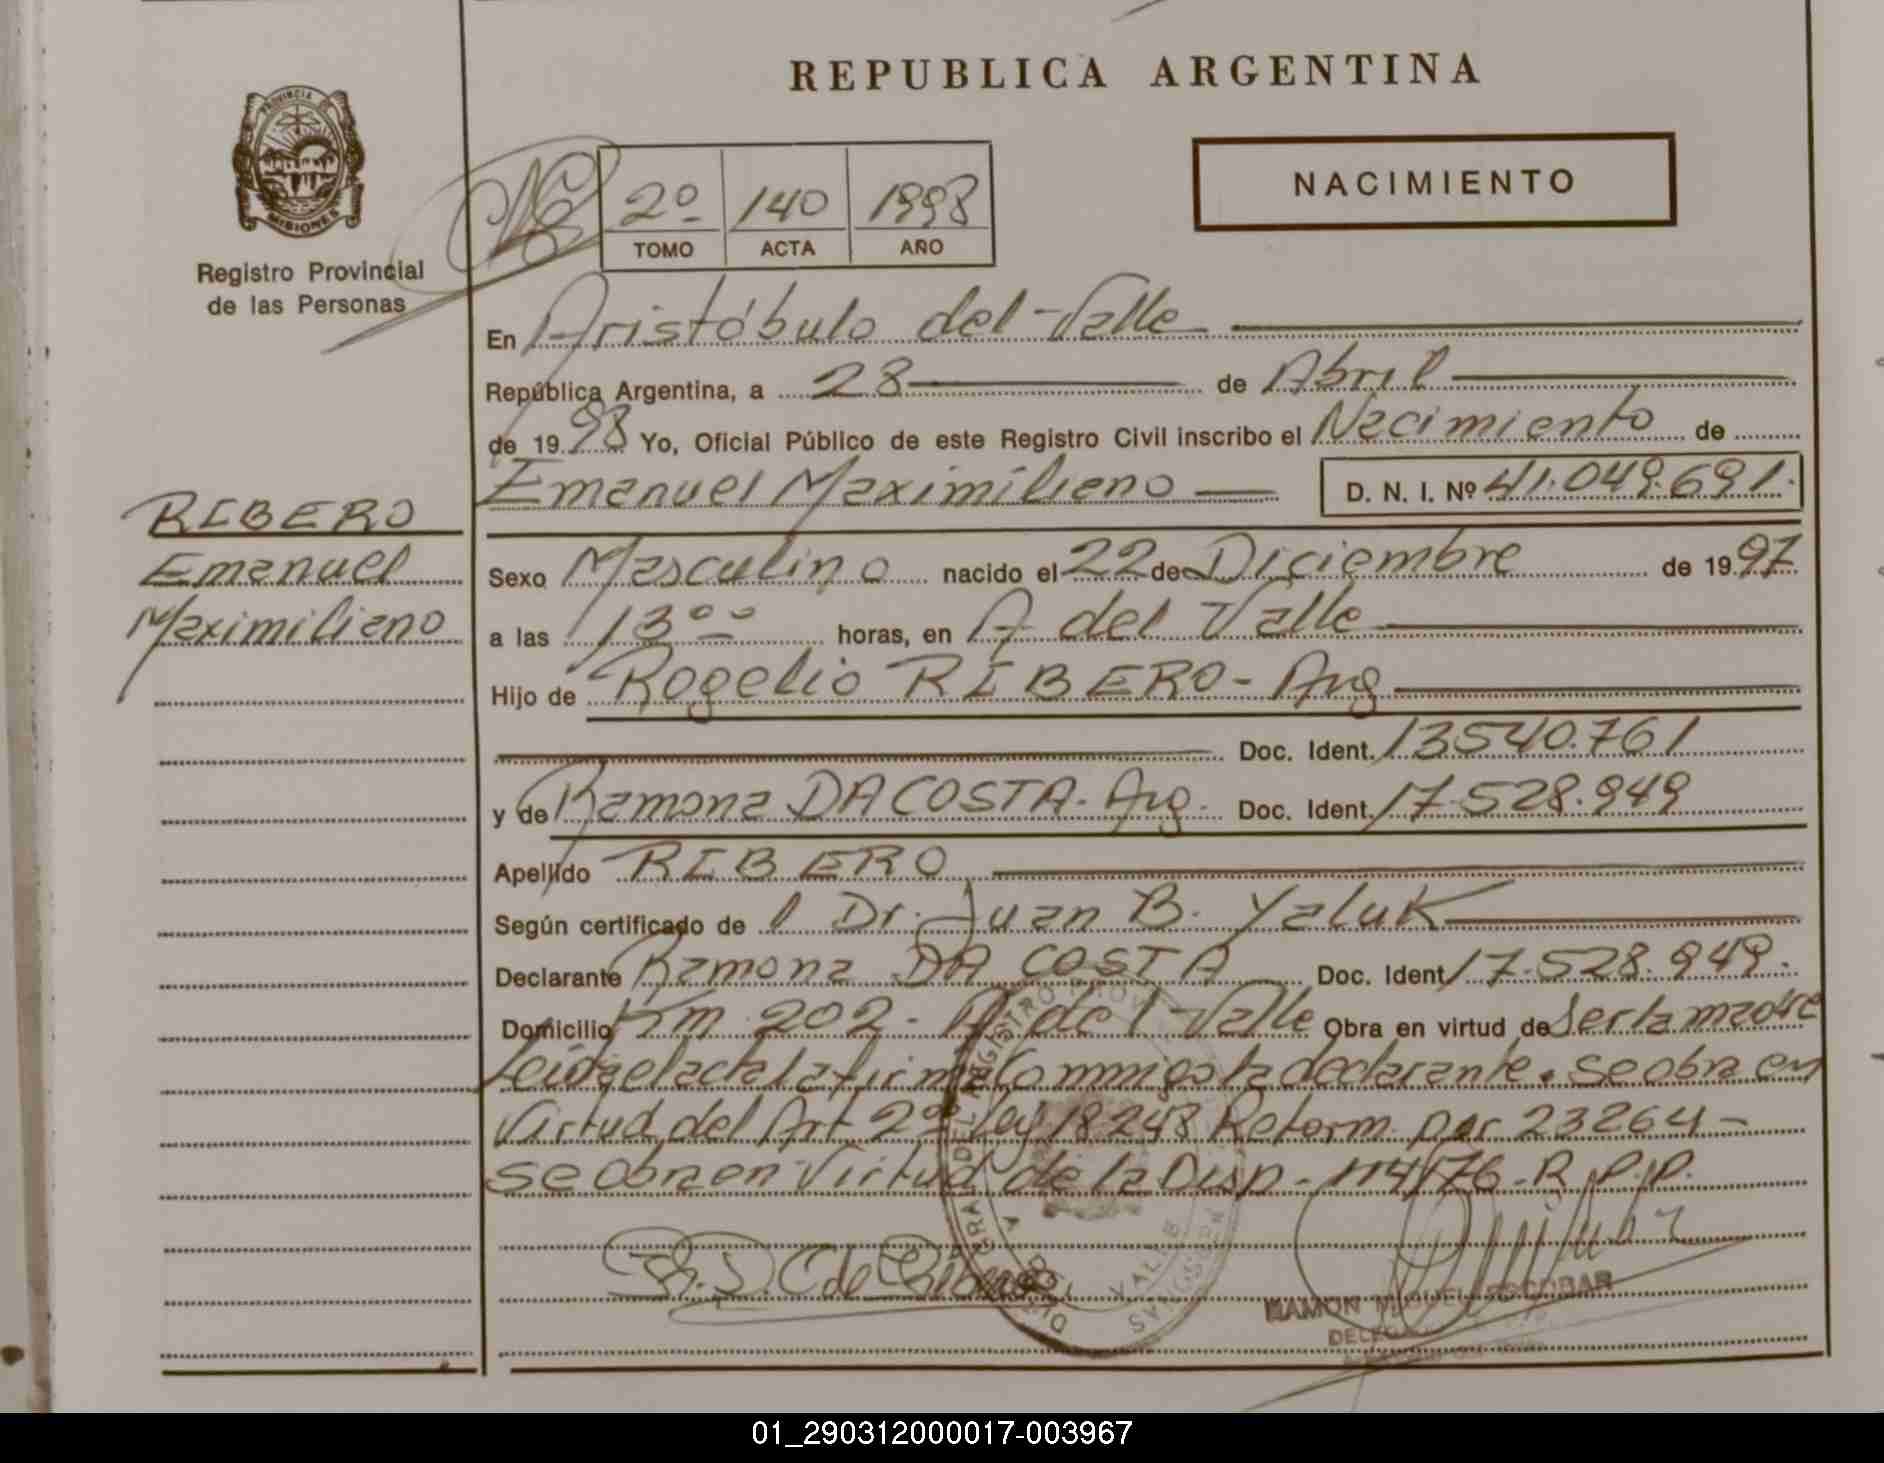 REPUBLICA ARGENTINA
PROVINCIA DE
MISIONES
Registro Provincial
de las Personas
2º 140 1998
TOMO ACTA AÑO
NACIMIENTO
En Aristóbulo del Valle
República Argentina, a 28 de Abril
de 1998 Yo, Oficial Público de este Registro Civil inscribo el Nacimiento de
Emanuel Maximiliano D. N. I. Nº 41.049.691.
RIBERO
Emanuel
Maximiliano
Sexo Masculino nacido el 22 de Diciembre de 1997
a las 13ºº horas, en A del Valle
Hijo de Rogelio RIBERO - Arg
Doc. Ident. 13540.761
y de Ramona DA COSTA - Arg. Doc. Ident. 17.528.949
Apellido RIBERO
Según certificado de l Dr. Juan B. Yaluk
Declarante Ramona DA COSTA Doc. Ident 17.528.949.
Domicilio Km 202 - A. del Valle Obra en virtud de ser la madre
Leida el acta la firma Conmigo la declarante. se obra en
Virtud del Art 2º Ley 18248 Reform. por 23264 -
se obra en Virtud de la Disp - 114/76 - R.P.P.
RAMON MIGUEL ESCOBAR
01_290312000017-003967